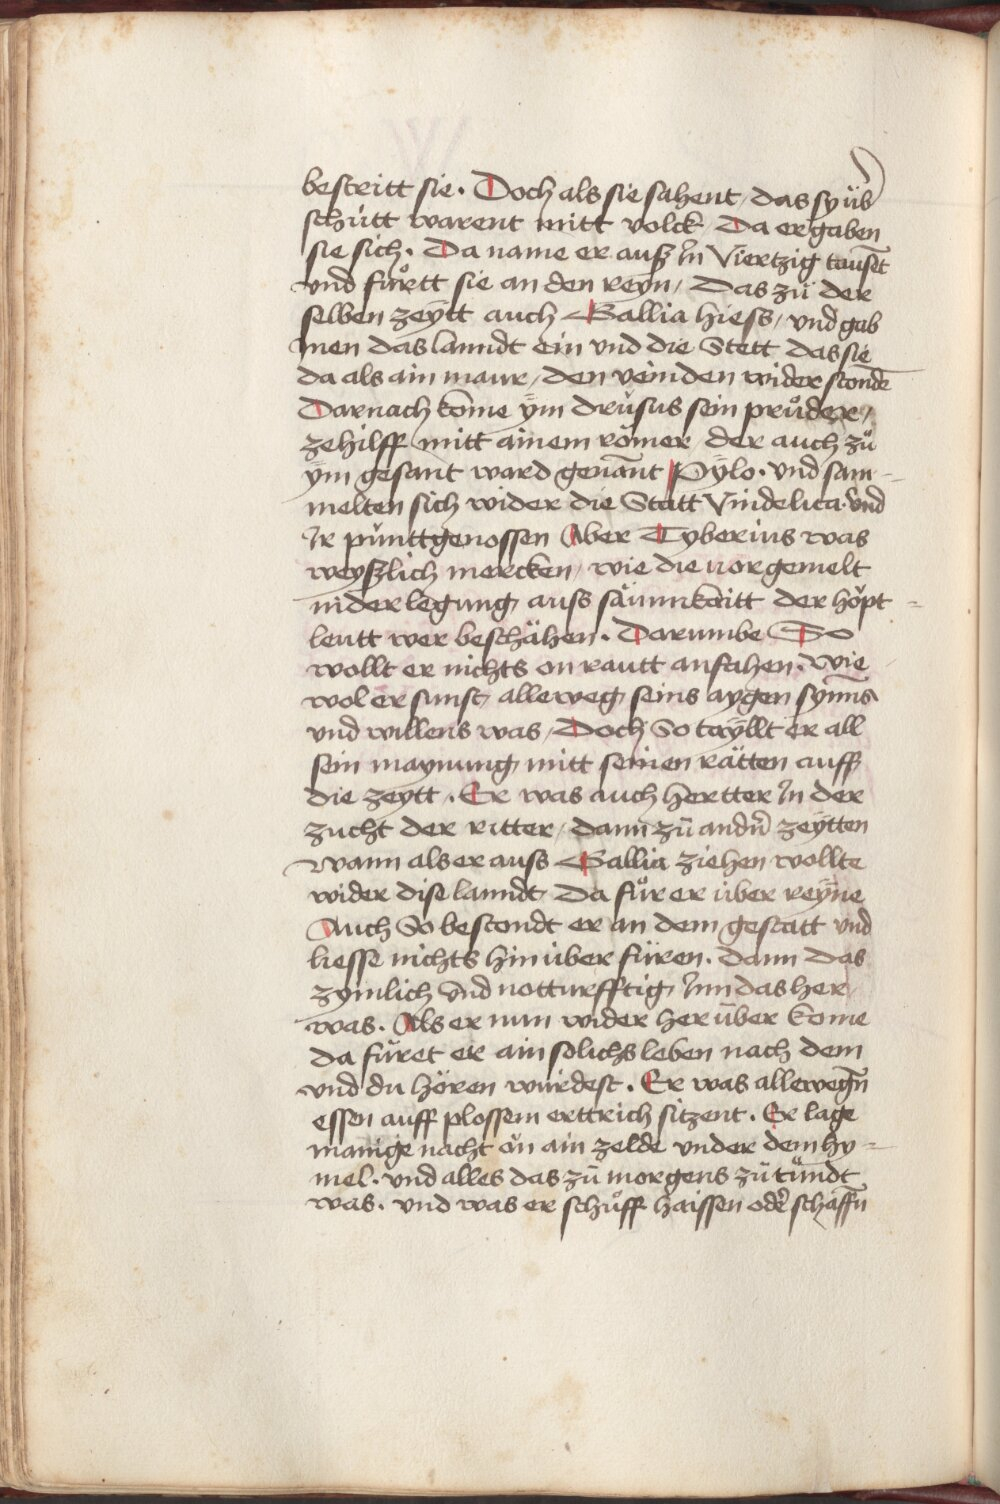 bestritt sie. Doch als sie sahent, das sy üb̄
schütt warent mitt volck, Da ergaben
sie sich. Da name er auß In Viertzig tausēt
und fuͦrtt sie an den reyn, Das zuͦ der
selben zeÿtt auch Gallia hiess, und gab
inen das lanndt ein und die Stett das sie
da als ain maur, den veinden wider stondē
Darnach kome ÿm drusus sein pruͦder,
zehilff mitt ainem römer der auch zuͦ
ÿm gesant ward genānt Pÿlo. und sam-
melten sich wider die Statt Vindelica. und
Ir punttgenossen Aber Tyberius was
weyßlich mercken, wie die vorgemelt
niderlegung auss säumkaitt der höpt-
leutt wer beschähen. Darumbe So
wollt er nichts on rautt anfahen. wie
wol er sunst, alleweg, seins aygen synns
und willens was, Doch So tayllt er all
sein maynung mitt seinen rätten auff
die zeytt. Er was auch hertter In der
zucht der ritter, dann zuͦ andn̄ zeÿtten
wann als er auss Gallia ziehen wollte
wider dise lanndt, Da fuͦr er über reyne
Auch So bestondt er an dem gestatt und
liesse nichts hinüber füren. dann das
zymlich und notturfftig Inn das her,
was. Als er nun wider herüber kome
da füret er ain solichs leben nach dem
und du hören würdest. Er was allewegn̄
essen auff plossem erttrich sitzent. Er lage
manige nacht on ain zelde under dem hy-
mel. und alles das zuͦ morgens zuͦ tündt
was. und was er schuͦff haissen odē schaffn̄